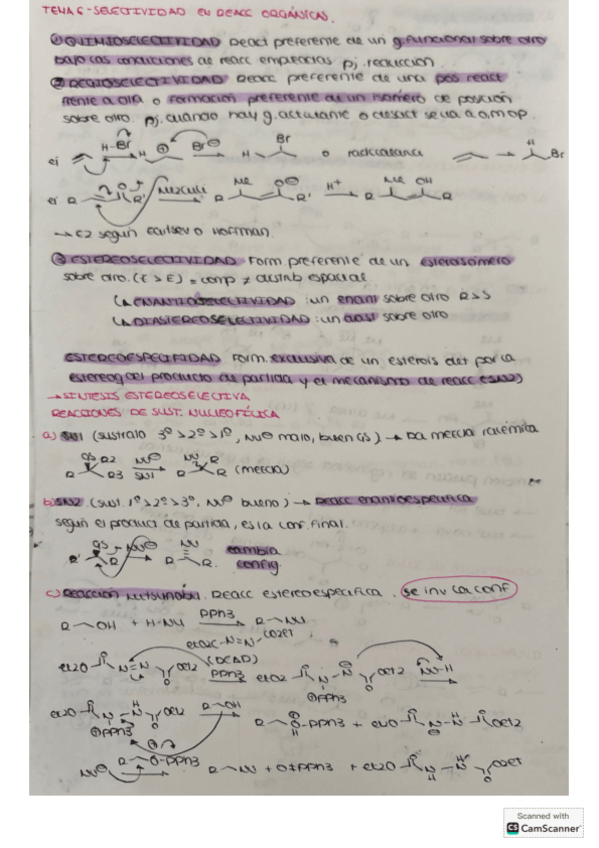 TEMA 6 - SELECTIVIDAD EN REACC ORGÁNICAS.
① QUIMIOSELECTIVIDAD React preferente de un g.funcional sobre otro
bajo las condiciones de reacc empleadas pj. reducción.
② REGIOSELECTIVIDAD Reacc preferente de una pos react
frente a otra o formación preferente de un isómero de posición
sobre otro. pj. cuando hay g.activante o desact se va a o,m o p.
ej H-Br H ⊕ Br⊖ H Br o radicalaria H Br
ej R O R' Me2CuLi R Me O⊖ R' H+ R Me OH R
→ E2 según saitsev o Hoffman.
③ ESTEREOSELECTIVIDAD Form preferente de un estereoisómero
sobre otro. (Z > E) = comp ≠ distrib espacial
↳ ENANTIOSELECTIVIDAD : un enant sobre otro R>S
↳ DIASTEREOSELECTIVIDAD : un diast sobre otro
ESTEREOESPECIFIDAD Form. exclusiva de un esterois det por la
estereoq del producto de partida y el mecanismo de reacc (SN2)
→ SINTESIS ESTEREOSELECTIVA
REACCIONES DE SUST. NUCLEOFÍLICA
a) SN1 (sustrato 3º>2º>1º, Nu⊖ malo, buen GS) → Da mezcla racémica
GS R2 R R3 Nu⊖ SN1 Nu R R R (mezcla)
b) SN2 (sust. 1º>2º>3º, Nu⊖ bueno) → Reacc enantioespecífica
según el product de partida, es la conf. final.
GS R' R Nu⊖ Nu R R. cambia
config.
c) Reacción Mitsunobu. Reacc estereoespecífica. se inv la conf
R OH + H-Nu PPh3 R Nu
etO2C-N=N-CO2Et
etO O N=N O OEt (DEAD) PPh3 N N ⊕PPh3 Nu-H
N N H ⊕PPh3 R OH R O H -PPh3 + N N H
Nu⊖ R O-PPh3 R Nu + O=PPh3 + etO N H N H O OEt
Scanned with
CS CamScanner